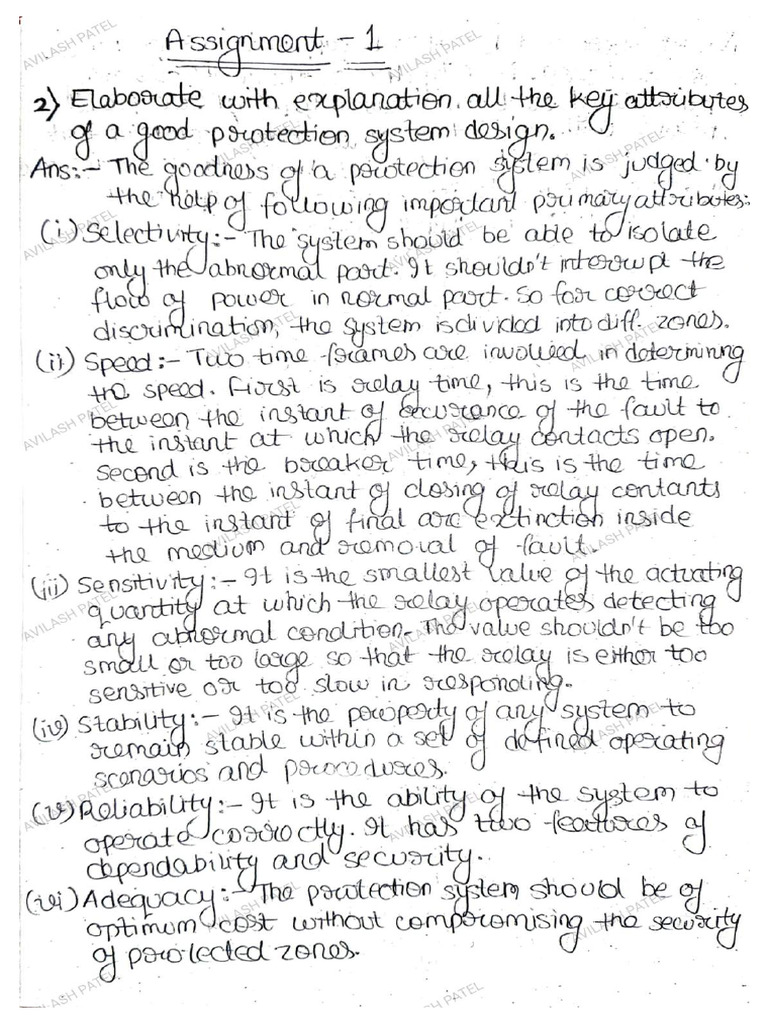 Assignment - 1
2) Elaborate with explanation, all the key attributes
of a good protection system design.
Ans:- The goodness of a protection system is judged by
the help of following important primary attributes:
(i) Selectivity:- The system should be able to isolate
only the abnormal part. It shouldn't interrupt the
flow of power in normal part. So for correct
discrimination, the system is divided into diff. zones.
(ii) Speed:- Two time frames are involved in determining
the speed. First is relay time, this is the time
between the instant of occurance of the fault to
the instant at which the relay contacts open.
Second is the breaker time, this is the time
between the instant of closing of relay contants
to the instant of final arc extinction inside
the medium and removal of fault.
(iii) Sensitivity:- It is the smallest value of the actuating
quantity at which the relay operates detecting
any abnormal condition. The value shouldn't be too
small or too large so that the relay is either too
sensitive or too slow in responding.
(iv) Stability:- It is the property of any system to
remain stable within a set of defined operating
scenarios and procedures.
(v) Reliability:- It is the ability of the system to
operate correctly. It has two features of
dependability and security.
(vi) Adequacy:- The protection system should be of
optimum cost without compromising the security
of protected zones.
AVILASH PATEL